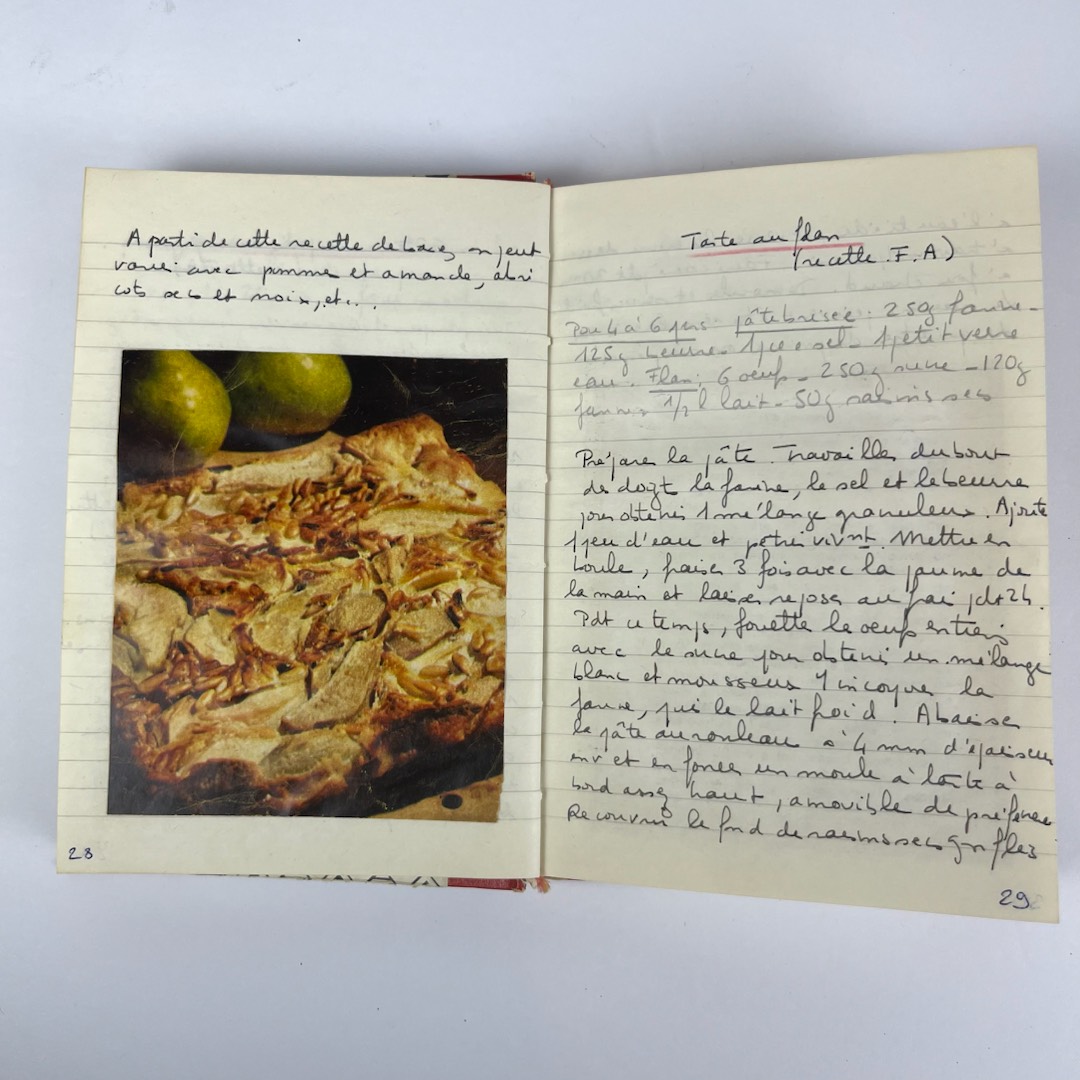 A parti de cette recette de base, on peut
varier avec pommes et amande, abri
cots secs et noix, etc..
28
Tarte au flan
(recette F.A)
Pour 4 à 6 pers pâte brisée : 250g farine -
125g beurre - 1 pce sel - 1 petit verre
eau. Flan : 6 oeufs - 250g sucre - 120g
farine - 1/2 l lait - 50g raisins secs
Préparer la pâte. Travailler du bout
de doigt la farine, le sel et le beurre
pour obtenir 1 mélange granuleux. Ajoute
1 peu d'eau et pétrir vivnt. Mettre en
boule, fraiser 3 fois avec la paume de
la main et laisser reposer au frai pdt 2h.
Pdt ce temps, fouetter le oeufs entiers
avec le sucre pour obtenir un mélange
blanc et mousseux y incorporer la
farine, puis le lait froid. Abaisser
la pâte au rouleau à 4 mm d'épaisseur
env et en foncer un moule à tarte à
bord assez haut, amovible de préférence
Recouvrir le fond de raisins secs gonflés
29